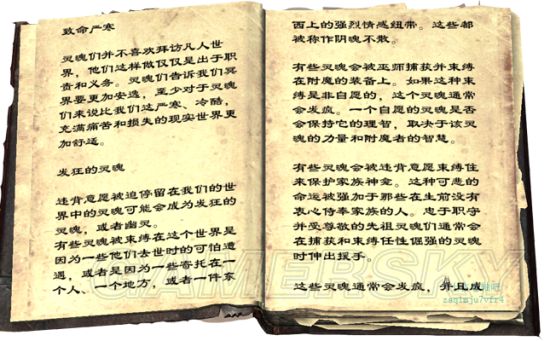 致命严寒
灵魂们并不喜欢拜访凡人世
界，他们这样做仅仅是出于职
责和义务。灵魂们告诉我们冥
界要更加安逸，至少对于灵魂
们来说比我们这严寒、冷酷，
充满痛苦和损失的现实世界更
加舒适。
发狂的灵魂
违背意愿被迫停留在我们的世
界中的灵魂可能会成为发狂的
灵魂，或者幽灵。
有些灵魂被束缚在这个世界是
因为一些他们去世时的可怕遭
遇，或者是因为一些寄托在一
个人、一个地方，或者一件东
西上的强烈情感纽带。这些都
被称作阴魂不散。
有些灵魂会被巫师捕获并束缚
在附魔的装备上。如果这种束
缚是非自愿的，这个灵魂通常
会发疯。一个自愿的灵魂是否
会保持它的理智，取决于该灵
魂的力量和附魔者的智慧。
有些灵魂会被违背意愿束缚住
来保护家族神龛。这种可悲的
命运被强加于那些在生前没有
衷心侍奉家族的人。忠于职守
并受尊敬的先祖灵魂们通常会
在捕获和束缚任性倔强的灵魂
时伸出援手。
这些灵魂通常会发疯，并且成
GAMERSKY
zaq1mju7vfr4